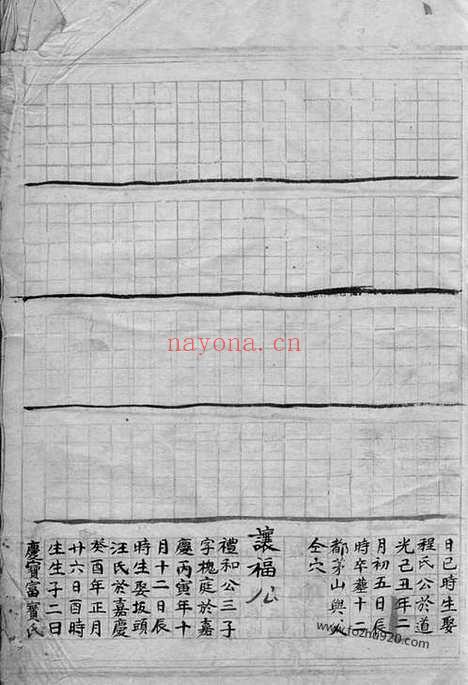 日巳時生娶
程氏公於道
光己丑年二
月初五日辰
時卒葬十二
都茅山與公
仝穴
讓福公
禮和公三子
字槐庭於嘉
慶丙寅年十
月十二日辰
時生娶坂頭
汪氏於嘉慶
癸酉年正月
廿六日酉時
生生子二日
慶寶富寶氏
nayona.cn
www.fozhu920.com